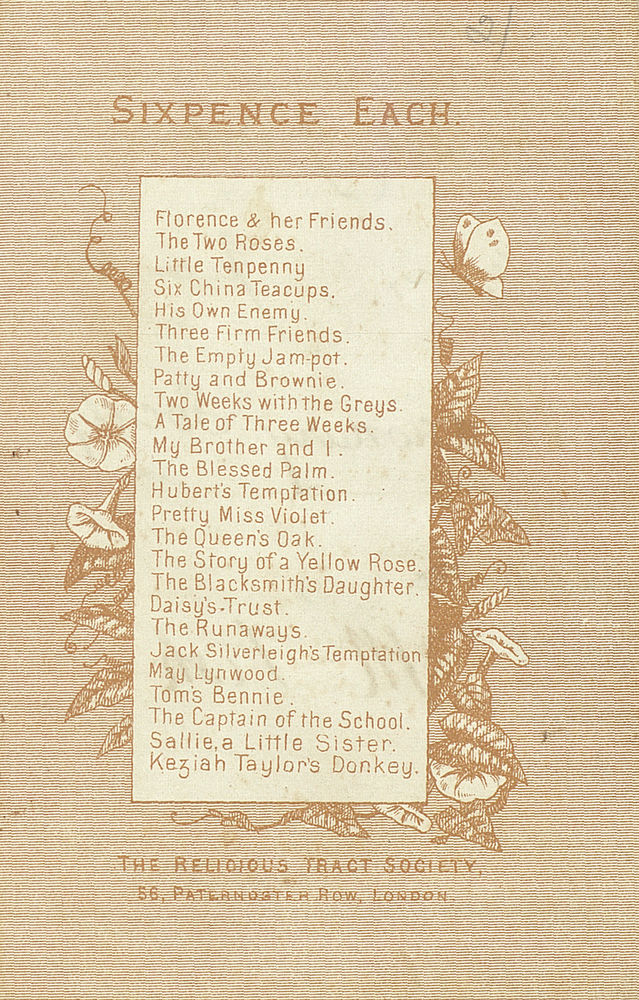 SIXPENCE EACH.
Florence & her Friends.
The Two Roses.
Little Tenpenny
Six China Teacups.
His Own Enemy.
Three Firm Friends.
The Empty Jam-pot.
Patty and Brownie.
Two Weeks with the Greys.
A Tale of Three Weeks.
My Brother and I.
The Blessed Palm.
Hubert's Temptation.
Pretty Miss Violet.
The Queen's Oak.
The Story of a Yellow Rose.
The Blacksmith's Daughter.
Daisy's Trust.
The Runaways.
Jack Silverleigh's Temptation
May Lynwood.
Tom's Bennie.
The Captain of the School.
Sallie, a Little Sister.
Keziah Taylor's Donkey.
THE RELIGIOUS TRACT SOCIETY,
56, PATERNOSTER ROW, LONDON.